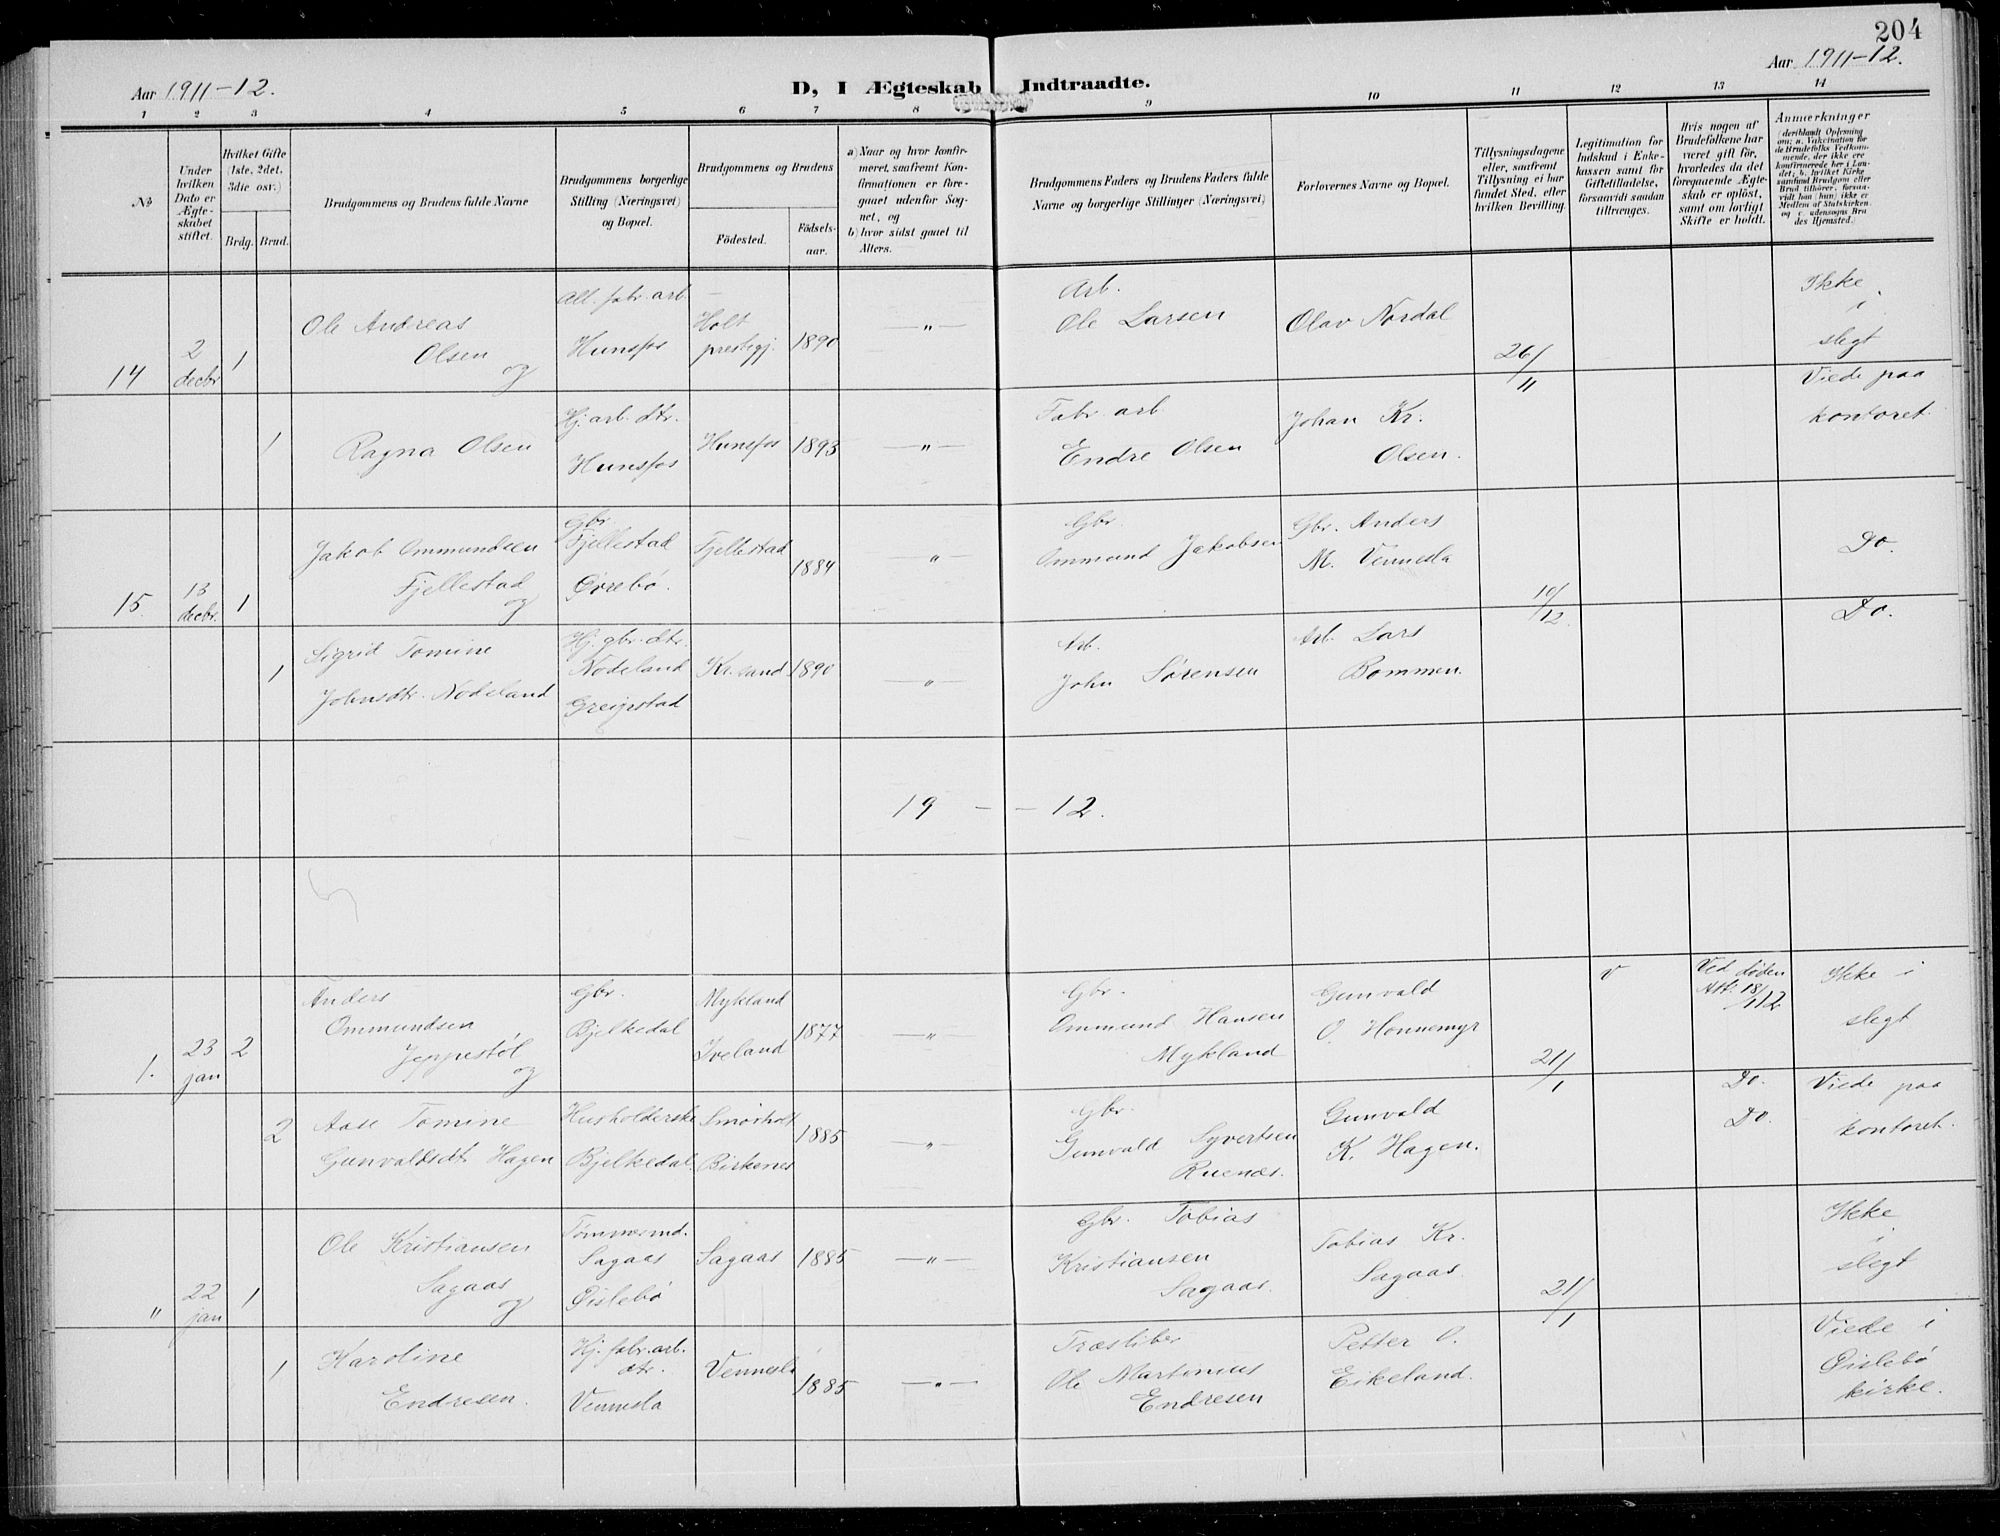 204
Aar 1911-12.
D, I Ægteskab Indtraadte.
Aar 1911-12.
1 2 3 4 5 6 7 8 9 10 11 12 13 14
№
Under hvilken Dato er Ægteskabet stiftet.
Hvilket Gifte (1ste, 2det, 3die osv.)
Brdg. Brud.
Brudgommens og Brudens fulde Navne
Brudgommens borgerlige Stilling (Næringsvei) og Bopæl.
Brudgommens og Brudens
Födested.
Födselsaar.
a) Naar og hvor konfirmeret, saafremt Konfirmationen er foregaaet udenfor Sognet, og
b) hvor sidst gaaet til Alters.
Brudgommens Faders og Brudens Faders fulde Navne og borgerlige Stillinger (Næringsvei)
Forlovernes Navne og Bopæl.
Tillysningsdagene eller, saafremt Tillysning ei har fundet Sted, efter hvilken Bevilling.
Legitimation for Indskud i Enkekassen samt for Giftetilladelse, forsaavidt saadan tiltrænges.
Hvis nogen af Brudefolkene har været gift för, hvorledes da det foregaaende Ægteskab er oplöst, samt om lovligt Skifte er holdt.
Anmærkninger
(deriblandt Oplysning om: a. Vakcination for de Brudefolks Vedkommende, der ikke ere konfirmerede her i Landet; b. hvilket Kirkesamfund Brudgom eller Brud tilhörer, forsaavidt han (hun) ikke er Medlem af Statskirken; og c. udensogns Brudes Hjemsted.
14
2
decbr
1
Ole Andreas
Olsen
og
All. fabr. arb.
Hunsfos
Holt
prestegj.
1890
— " —
Arb.
Ole Larsen
Olav Nordal
26/11
Ikke
i
slegt
1
Ragna Olsen
Hj. arb. dtr.
Hunsfos
Hunsfos
1893
— " —
Fabr. arb.
Endre Olsen
Johan Kr.
Olsen.
Viede paa
kontoret.
15.
13
decbr.
1
Jakob Ommundsen
Fjellestad
og
Gbr
Fjellestad
Øvrebö.
Fjellestad
1884
"
Gbr.
Ommund Jakobsen
Gbr. Anders
M. Vennesla
10/12
Do.
1
Sigrid Tomine
Johnsdtr. Nodeland
Hj. gbr. dtr.
Nodeland
Greipstad
Kr.sand
1890
— " —
Arb.
John Sørensen
Arb. Lars
Bommen.
Do.
19 - - 12.
1.
23
jan
2
Anders
Ommundsen
Jeppestöl
og
Gbr.
Bjelkedal
Mykland
Iveland
1877
— " —
Gbr.
Ommund Hansen
Mykland
Gunvald
O. Honnemyr
21/1
v
Ved døden
Att. 18/1 12
Ikke i
slegt
2
Aase Tomine
Gunvaldsdt Hagen
Husholderske
Bjelkedal
Smørholt
Birkenes
1885
"
Gbr
Gunvald Syvertsen
Ruenæs.
Gunvald
K. Hagen.
Do.
Do.
Viede paa
kontoret.
"
22
jan
1
Ole Kristiansen
Sagaas
og
Tømmermd.
Sagaas
Øislebø
Sagaas
1885
— " —
Gbr. Tobias
Kristiansen
Sagaas.
Tobias Kr.
Sagaas.
21/1
Ikke
i
slegt
1
Karoline
Endresen.
Hj. fabr. arb.
dtr.
Vennesla
Vennesla
1885
— " —
Træsliber
Ole Martinius
Endresen
Petter O.
Eikeland.
Viede i
Øislebø
kirke.